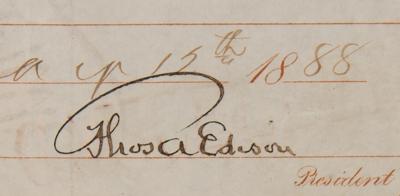 a y 15th 1888
Thos A Edison
President